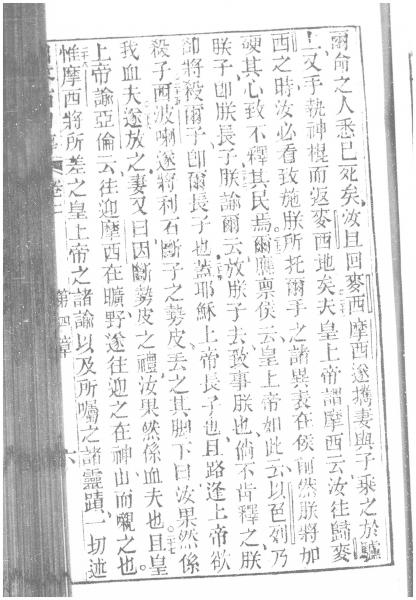 爾命之人悉已死矣汝且回麥西摩西遂攜妻與子乘之於驢
上又手執神棍而返麥西地矣夫皇上帝謂摩西云汝往歸麥
西之時汝必看致施朕所托爾手之諸異妻在侯前然朕將加
硬其心致不釋其民焉爾應禀侯云皇上帝如此云以色列乃
朕子卽朕長子朕諭爾云放朕子去致事朕也倘不肯釋之朕
卽將殺爾子卽爾長子也蓋耶穌上帝長子也且路逢上帝欲
殺子西波喇遂將利石斷子之勢皮丟之其脚下曰汝果然係
我血夫遂放之妻又曰因斷勢皮之禮汝果然係血夫也且皇
上帝諭亞倫云往迎摩西在曠野遂往迎之在神山而嚫之也
惟摩西將所差之皇上帝之諸諭以及所囑之諸靈蹟一切述
第四章
六